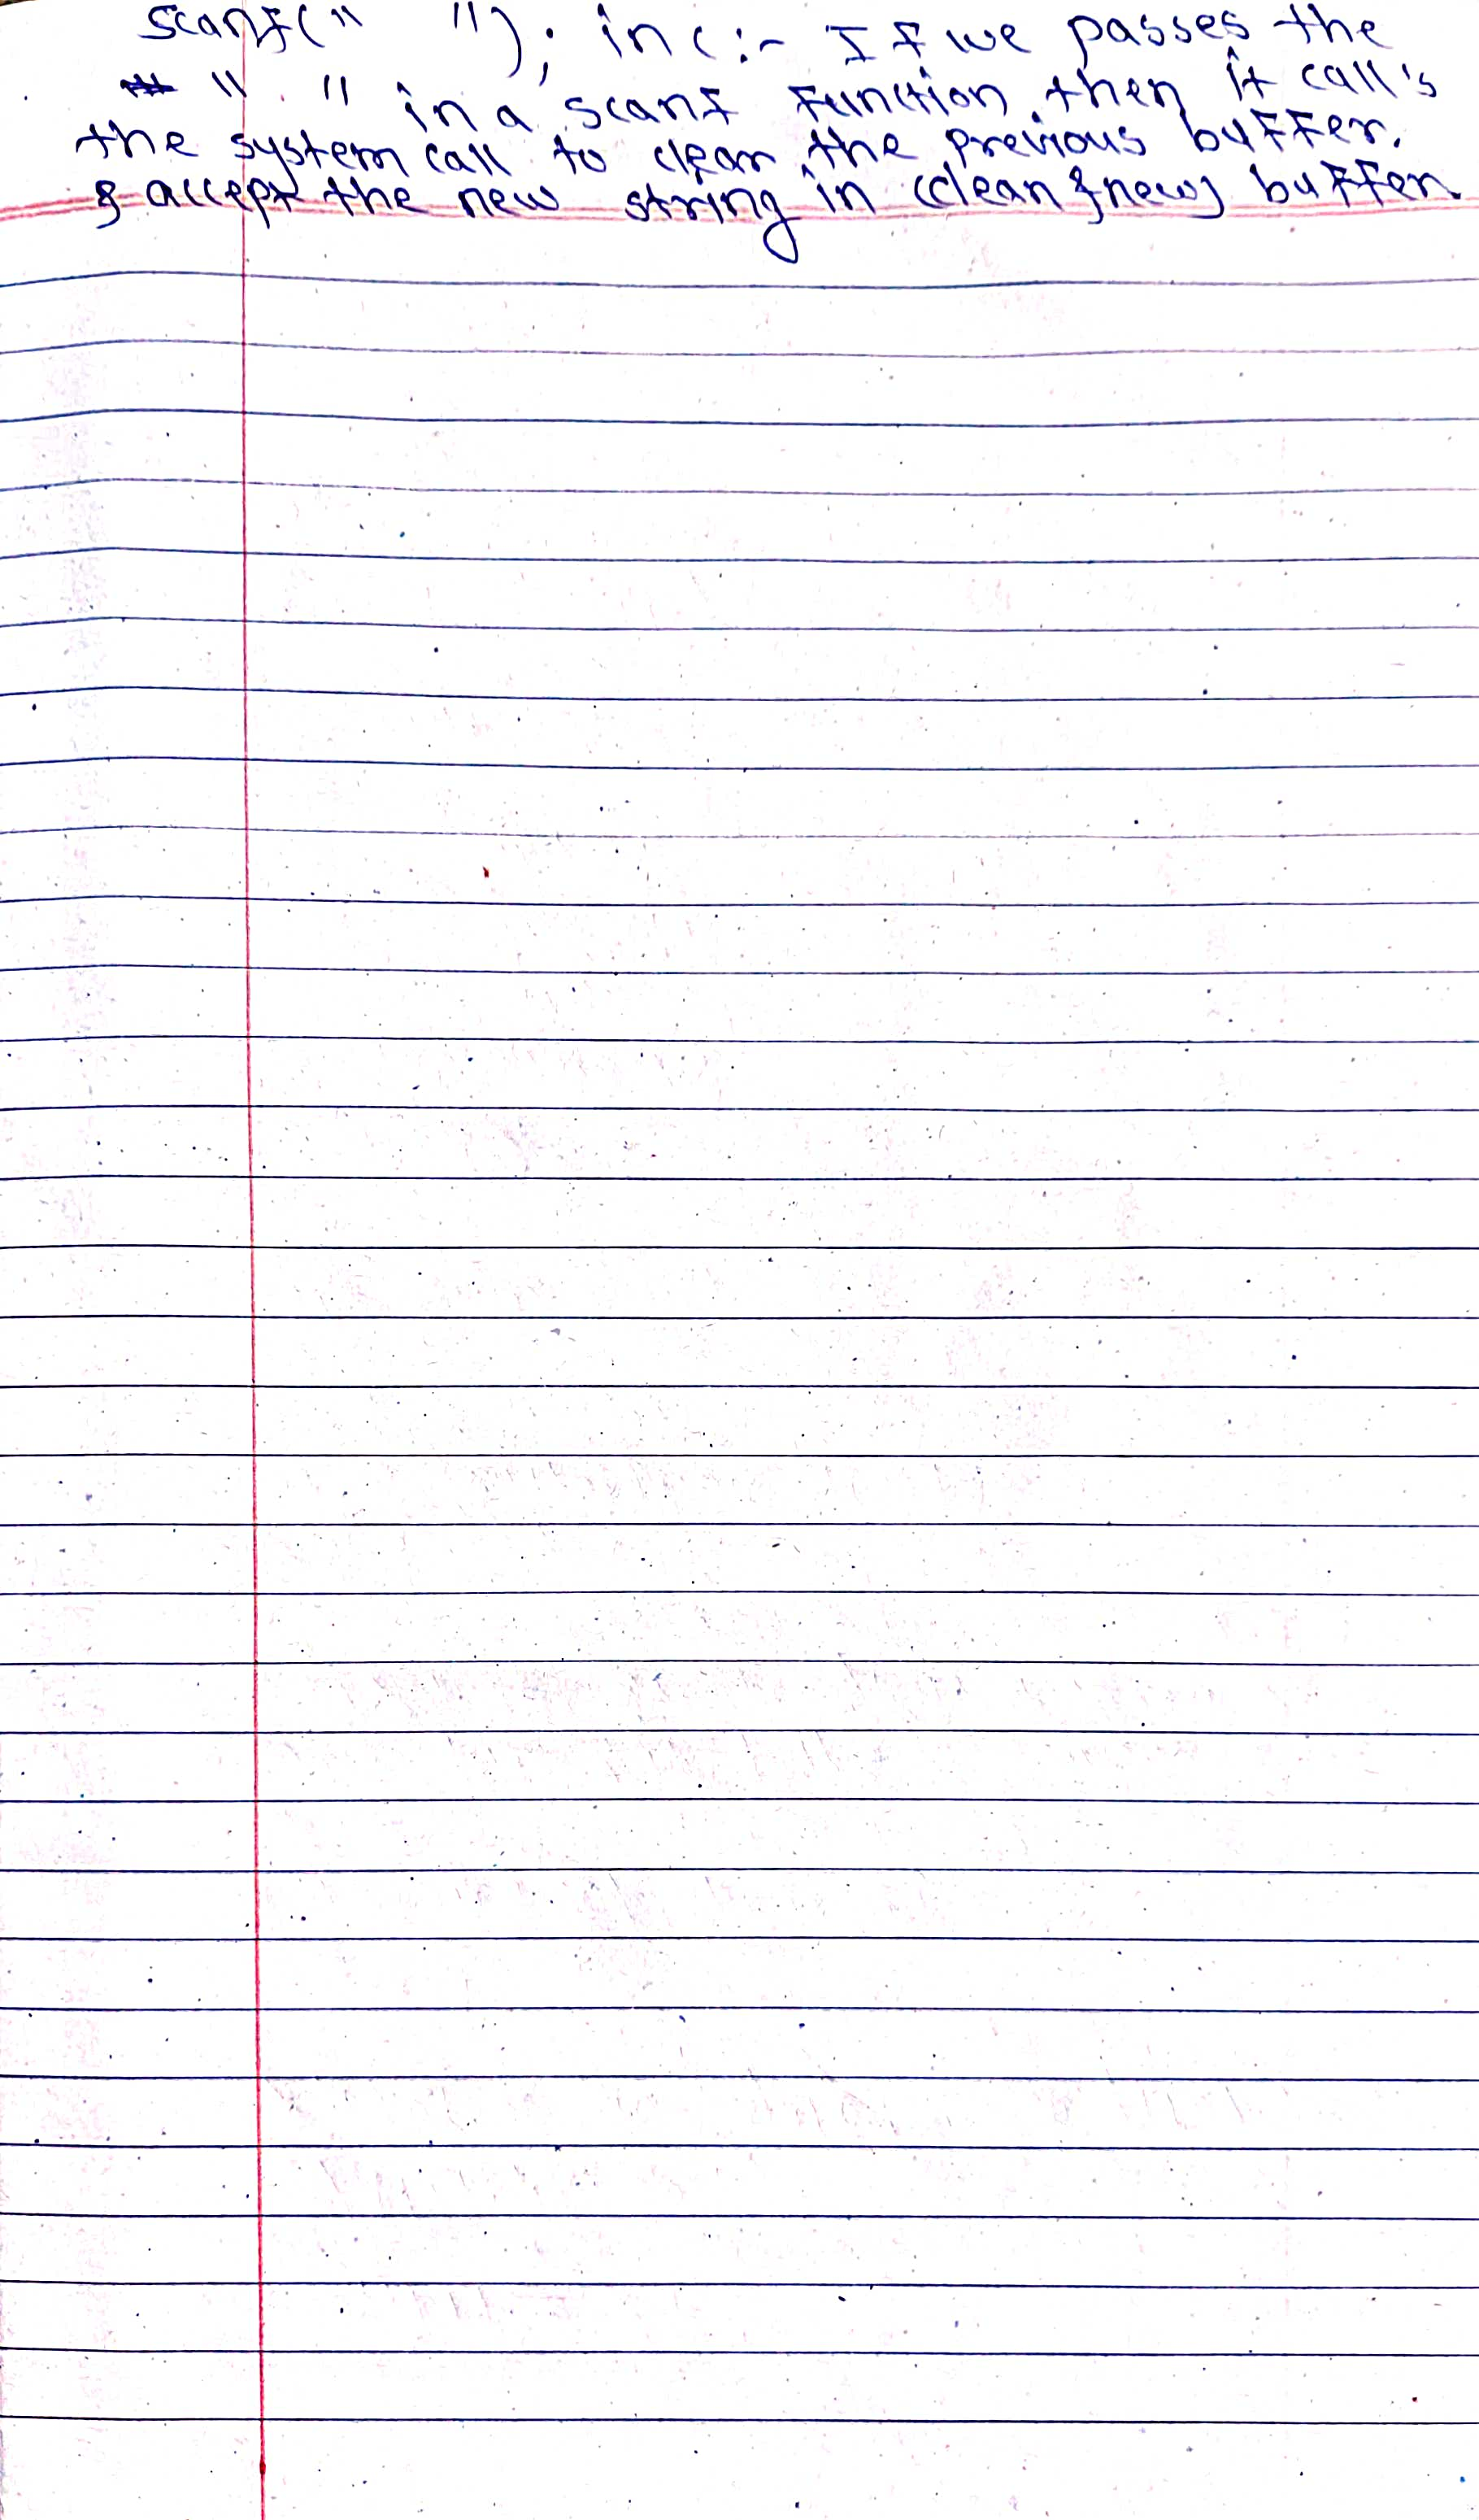 scanf("   "); in c :- If we passes the
"   " in a scanf function then it call's
the system call to clear the previous buffer.
& accept the new string in (clean & new) buffer.